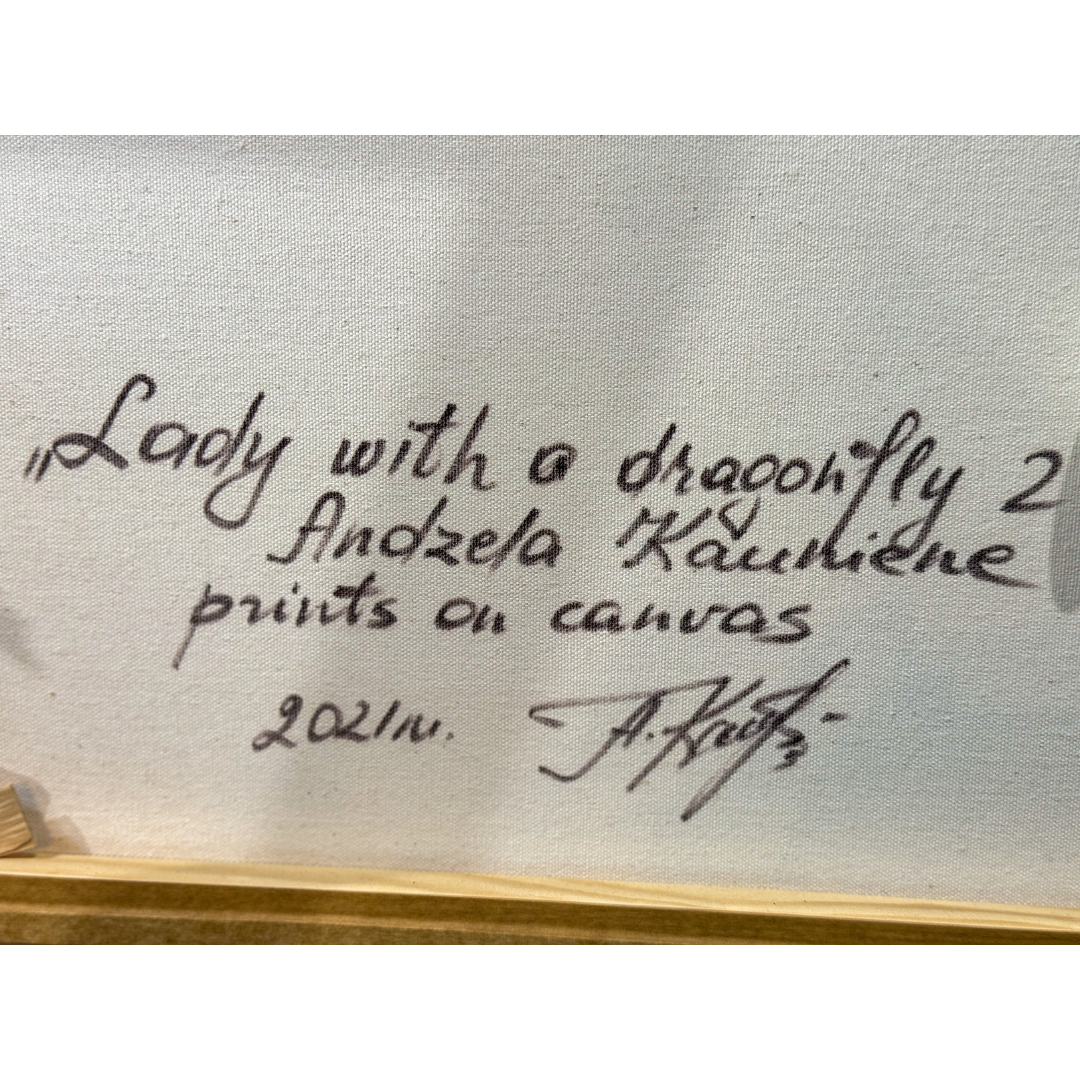 „Lady with a dragonfly 2
Andzela Kauniene
prints on canvas
2021m. A. Kau